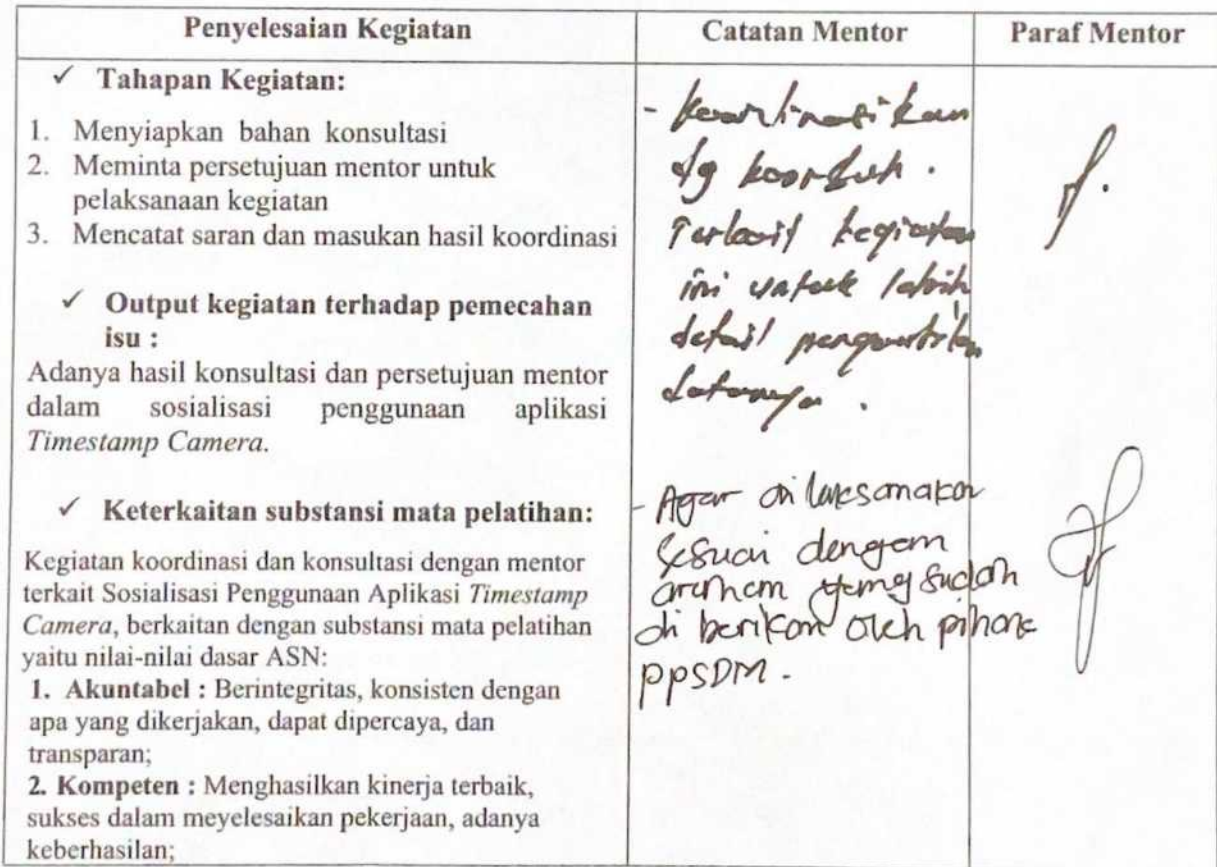 Penyelesaian Kegiatan
Catatan Mentor
Paraf Mentor
✓ Tahapan Kegiatan:
1. Menyiapkan bahan konsultasi
2. Meminta persetujuan mentor untuk
pelaksanaan kegiatan
3. Mencatat saran dan masukan hasil koordinasi
✓ Output kegiatan terhadap pemecahan
isu :
Adanya hasil konsultasi dan persetujuan mentor
dalam sosialisasi penggunaan aplikasi
Timestamp Camera.
✓ Keterkaitan substansi mata pelatihan:
Kegiatan koordinasi dan konsultasi dengan mentor
terkait Sosialisasi Penggunaan Aplikasi Timestamp
Camera, berkaitan dengan substansi mata pelatihan
yaitu nilai-nilai dasar ASN:
1. Akuntabel : Berintegritas, konsisten dengan
apa yang dikerjakan, dapat dipercaya, dan
transparan;
2. Kompeten : Menghasilkan kinerja terbaik,
sukses dalam meyelesaikan pekerjaan, adanya
keberhasilan;
- Koordinasikan
dg
kegiatan
ini untuk lebih
detail
datanya.
- Agar dilaksanakan
sesuai dengan
arahan yang sudah
di berikan oleh pihak
PPSDM.